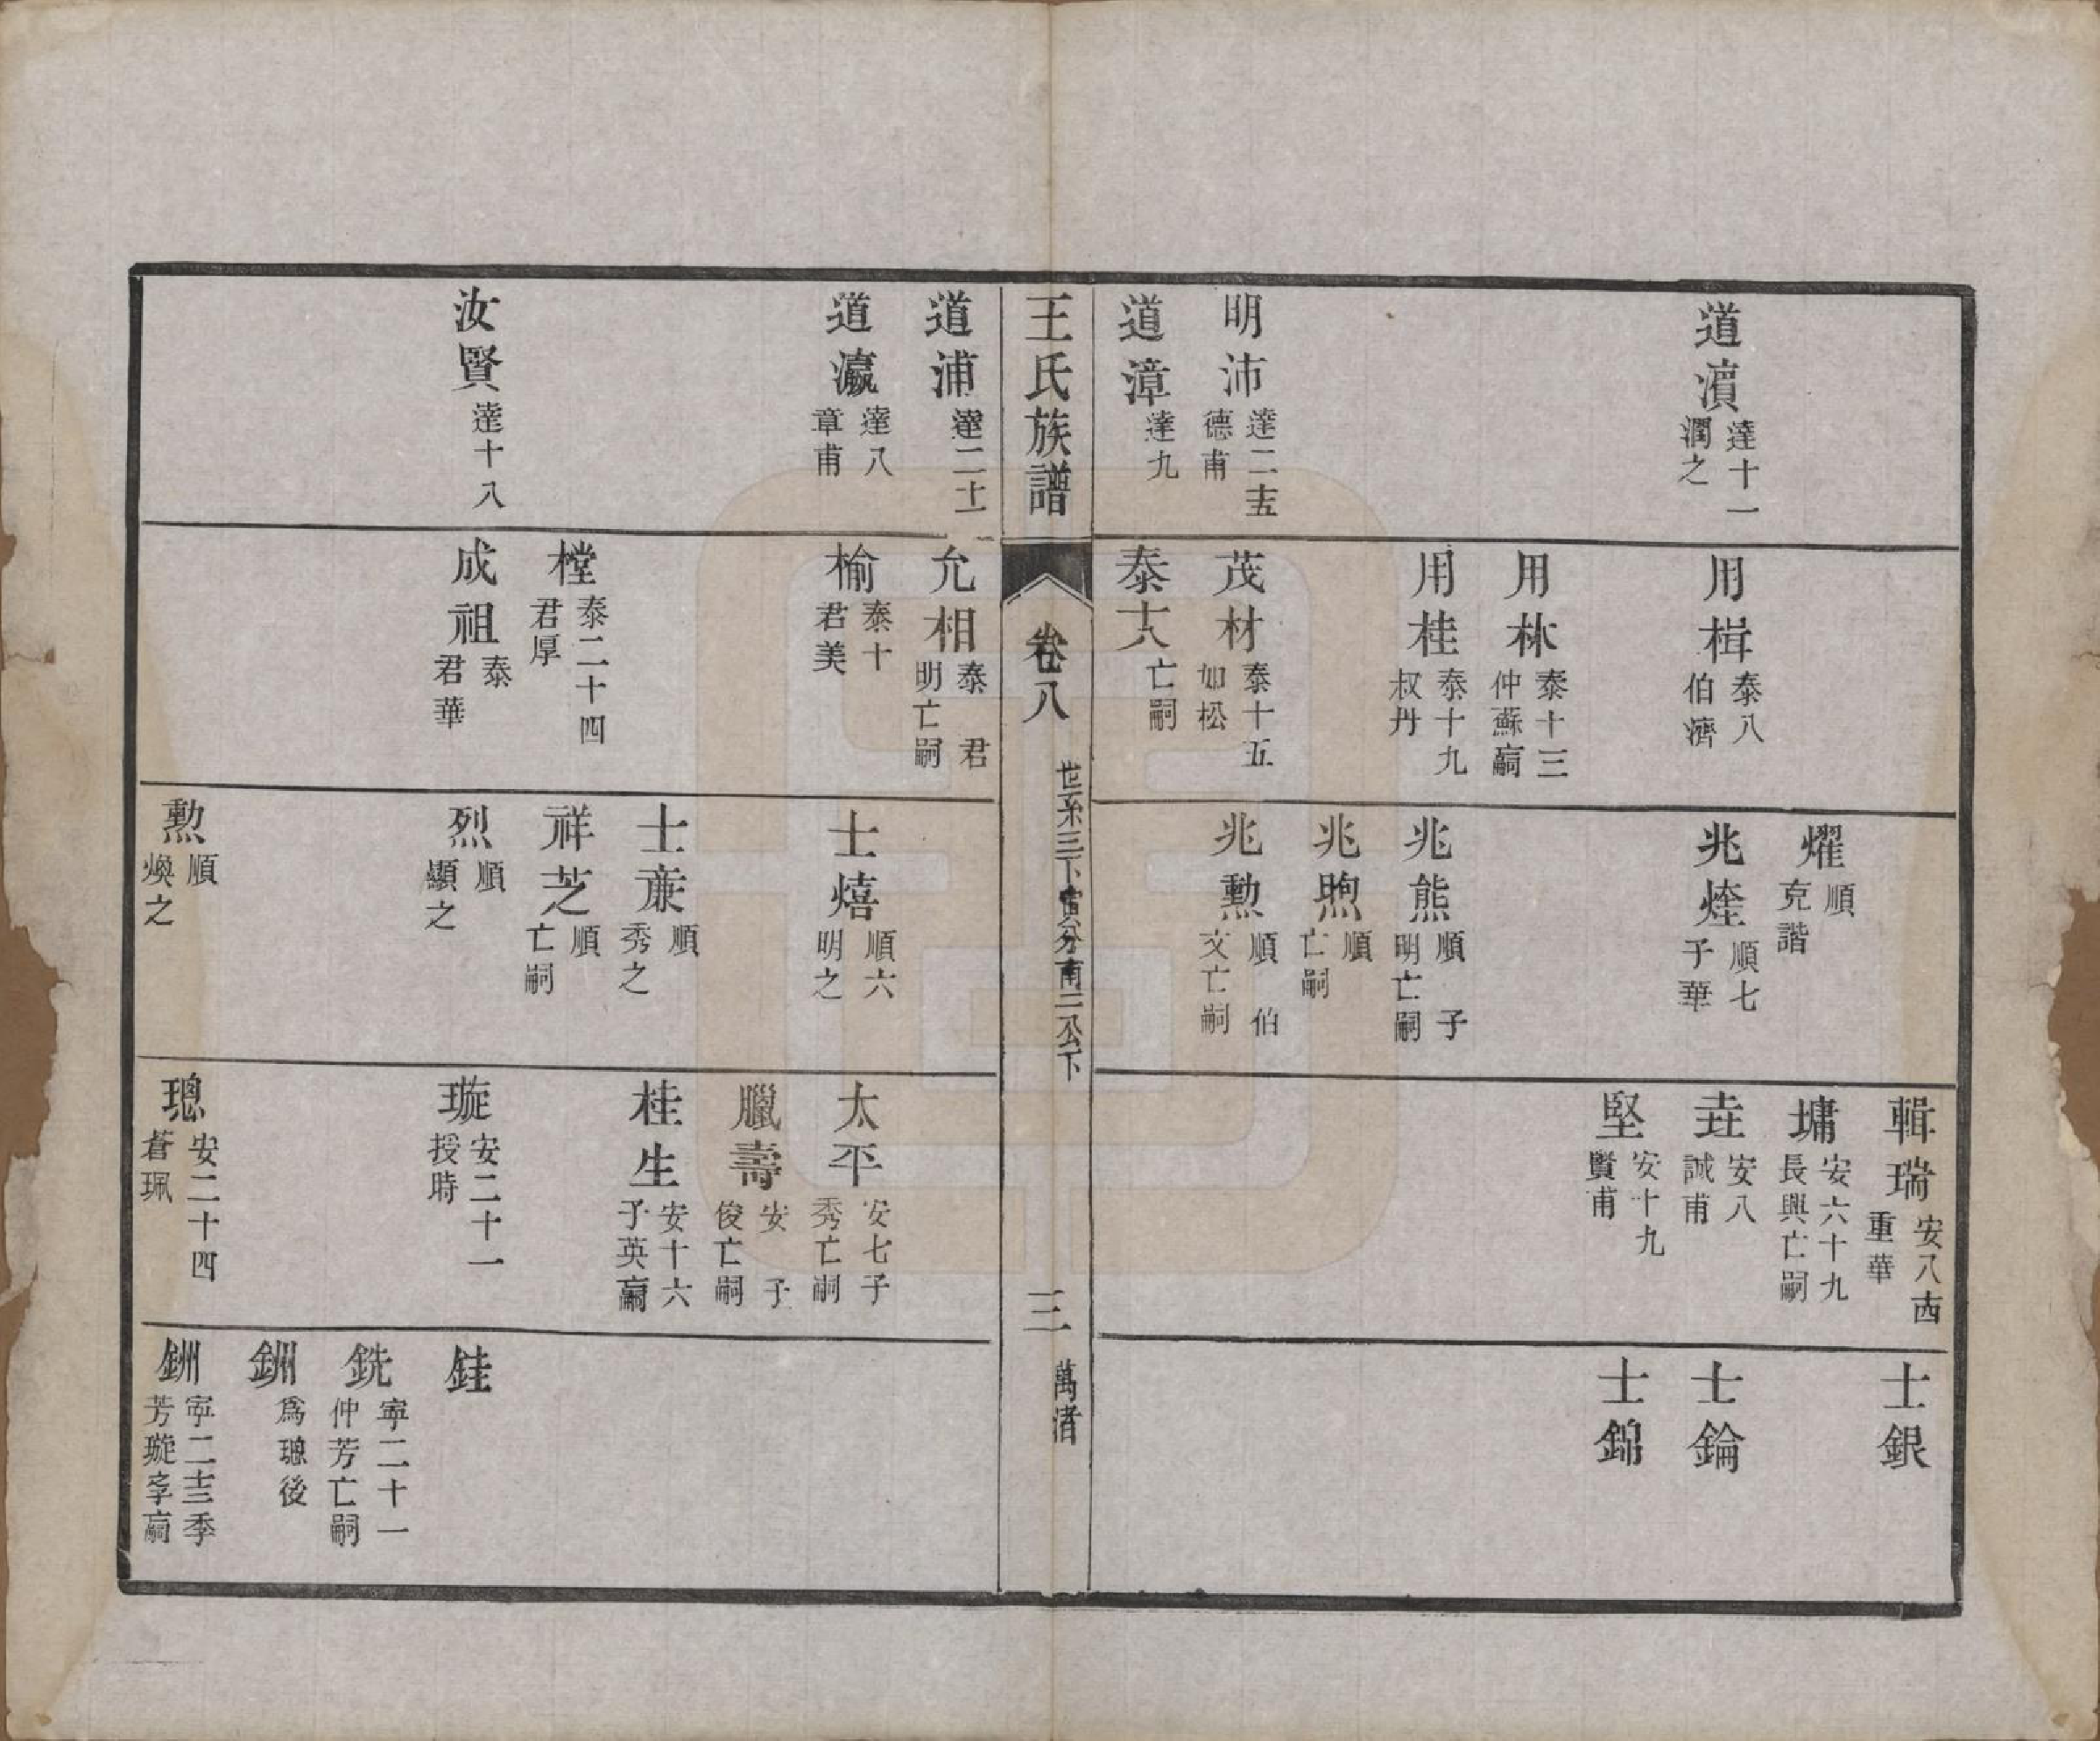 道濆 達十一 潤之
明沛 達二十五 德甫
道漳 達九
用楫 泰八 伯濟
用林 泰十三 仲蘇 亡嗣
用桂 泰十九 叔丹
茂材 泰十五 如松
泰十八 亡嗣
燿 順 克諧
兆煃 順七 子華
兆熊 順 子明 亡嗣
兆煦 順 亡嗣
兆勲 順 伯文 亡嗣
輯瑞 安八西 重華
墉 安六十九 長興 亡嗣
垚 安八 誠甫
堅 安十九 賢甫
士銀
士錀
士錦
王氏族譜 卷八 世系三下 分南二公下 三 萬渚
道浦 達二十二
道瀛 達八 章甫
汝賢 達十八
允相 泰 君明 亡嗣
楡 泰十 君美
樘 泰二十四 君厚
成祖 泰 君華
士熺 順六 明之
士 順 秀之
祥芝 順 亡嗣
烈 順 顯之
勲 順 煥之
太平 安七 子秀 亡嗣
臘壽 安 子俊 亡嗣
桂生 安十六 子英 亡嗣
璇 安二十一 授時
璁 安二十四 蒼珮
銈
銑 寧二十一 仲芳 亡嗣
銂 爲璁後
銂 寧二十三 季芳 璇 亡嗣